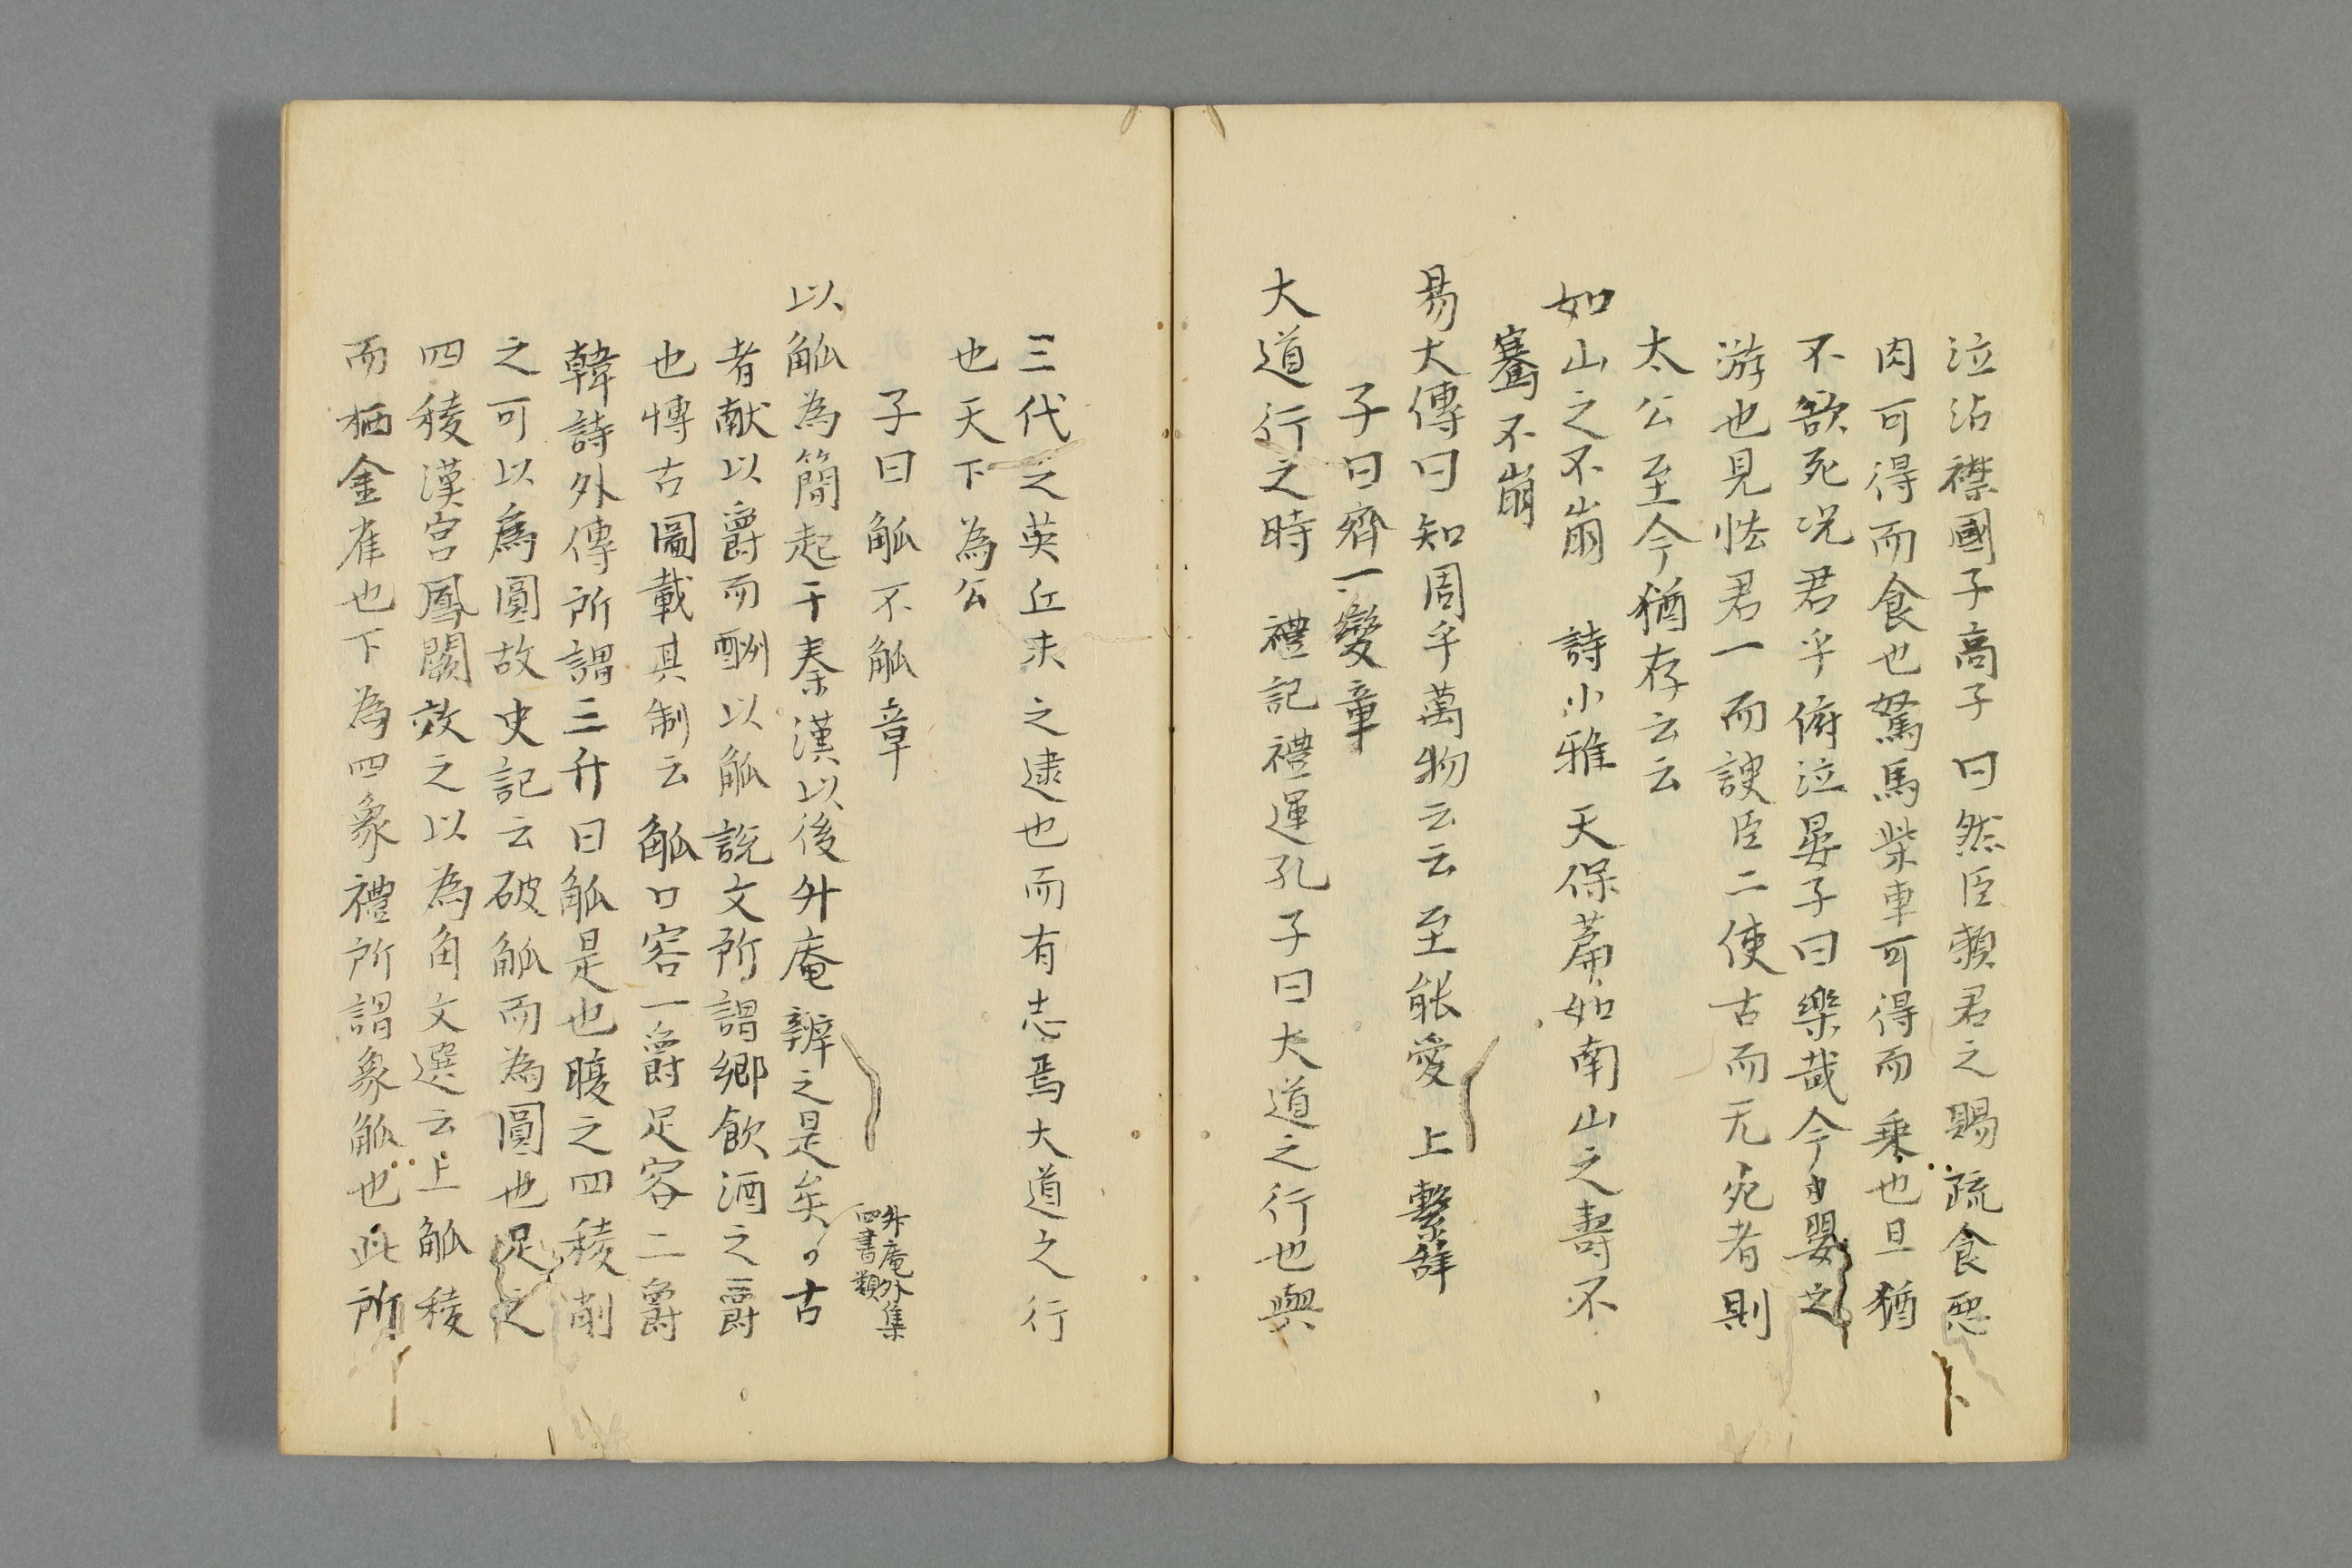 泣沾襟國子高子曰然臣頼君之賜疏食惡
肉可得而食也駑馬柴車可得而乗也且猶
不欲死況君乎俯泣晏子曰樂哉今日嬰之
游也見怯君一而諛臣二使古而无死者則
太公至今猶存云云
如山之不崩　詩小雅天保篇如南山之壽不
騫不崩
易大傳曰知周乎萬物云云至能愛　上繫辞
子曰齊一變章
大道行之時　禮記禮運孔子曰大道之行也與
三代之英丘未之逮也而有志焉大道之行
也天下為公
子曰觚不觚章
以觚為簡起于秦漢以後升庵辨之是矣
升庵外集
四書類
古
者献以爵而酬以觚說文所謂鄉飲酒之爵
也博古圖載其制云觚口容一爵足容二爵
韓詩外傳所謂三升曰觚是也腹之四稜削
之可以為圓故史記云破觚而為圓也足之
四稜漢宮鳳闕效之以為角文選云上觚稜
而栖金雀也下為四象禮所謂象觚也此所